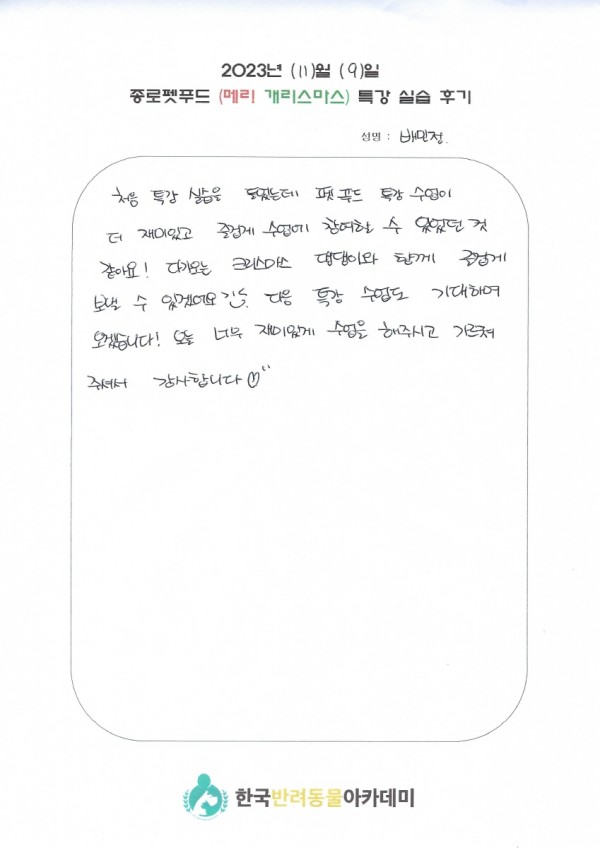 2023년 (11)월 (9)일
종로펫푸드 (메리 개리스마스) 특강 실습 후기
성명 : 배민정.
처음 특강 실습을 들었는데 펫푸드 특강 수업이
더 재미있고 즐겁게 수업에 참여할 수 있었던 것
같아요! 다가오는 크리스마스 댕댕이와 함께 즐겁게
보낼 수 있겠네요 다음 특강 수업도 기대하며
오겠습니다! 오늘 너무 재미있게 수업을 해주시고 가르쳐
주셔서 감사합니다♡"
한국반려동물아카데미